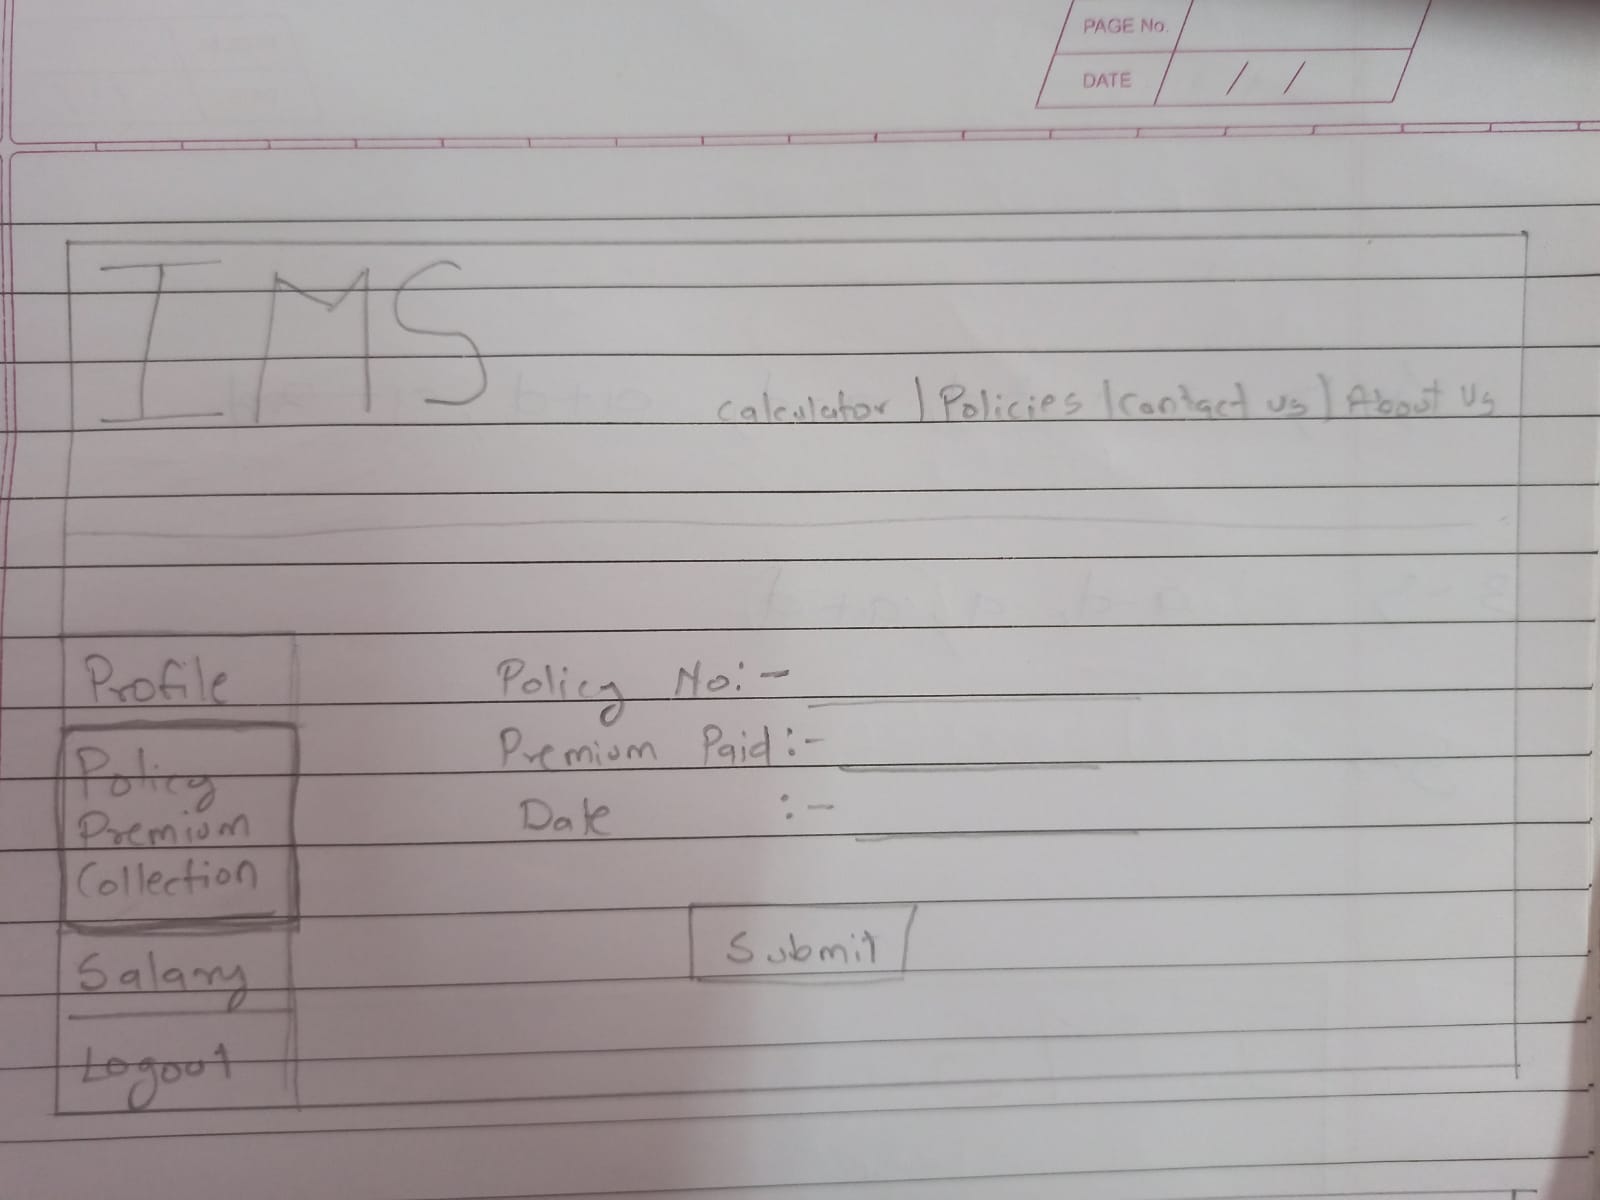 PAGE No.
DATE / /
IMS
Calculator | Policies | Contact us | About Us
Profile
Policy
Premium
Collection
Salary
Logout
Policy No:-
Premium Paid:-
Date :-
Submit